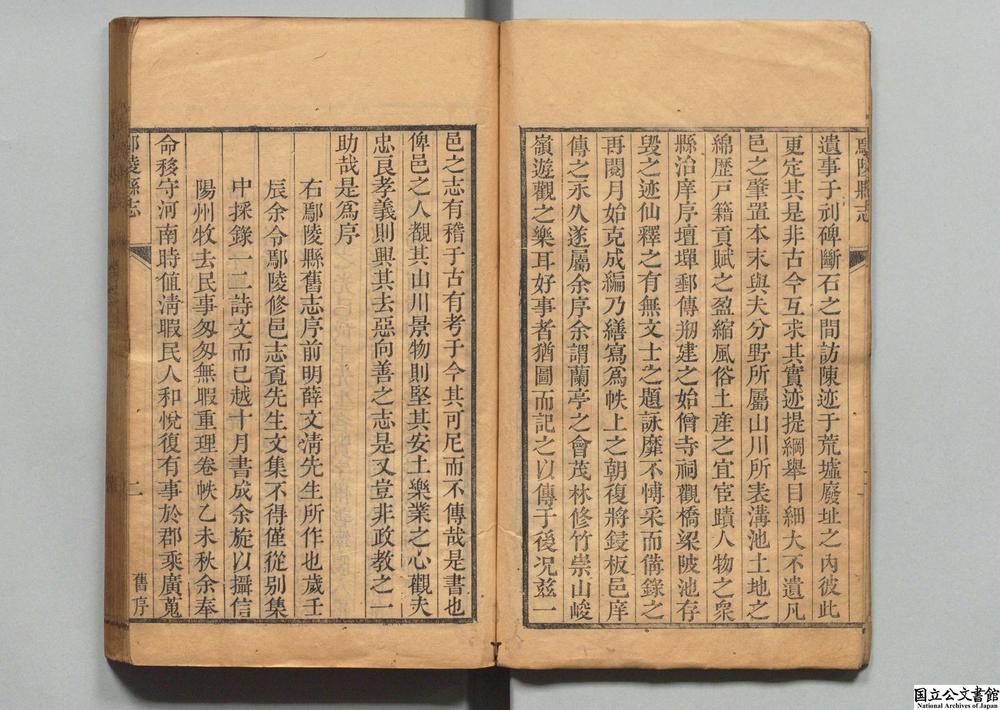 鄢陵縣志
遺事于刹碑斷石之間訪陳迹于荒墟廢址之內彼此
更定其是非古今互求其實迹提綱舉目細大不遺凡
邑之肇置本末與夫分野所屬山川所表溝池土地之
綿歷戸籍貢賦之盈縮風俗土產之宜宦蹟人物之衆
縣治庠序壇墠郵傳剏建之始僧寺祠觀橋梁陂池存
毀之迹仙釋之有無文士之題詠靡不愽采而備錄之
再閱月始克成編乃繕寫爲帙上之朝復將鋟板邑庠
傳之永久遂屬余序余謂蘭亭之會茂林修竹崇山峻
嶺遊觀之樂耳好事者猶圖而記之以傳于後况兹一
邑之志有稽于古有考于今其可尼而不傳哉是書也
俾邑之人觀其山川景物則堅其安土樂業之心觀夫
忠良孝義則興其去惡向善之志是又豈非政教之一
助哉是爲序
右鄢陵縣舊志序前明薛文清先生所作也歲壬
辰余令鄢陵修邑志覔先生文集不得僅從别集
中採錄一二詩文而已越十月書成余旋以攝信
陽州牧去民事匆匆無暇重理卷帙乙未秋余奉
命移守河南時值清暇民人和悅復有事於郡乘廣蒐
鄢陵縣志
二
舊序
国立公文書館
National Archives of Japan